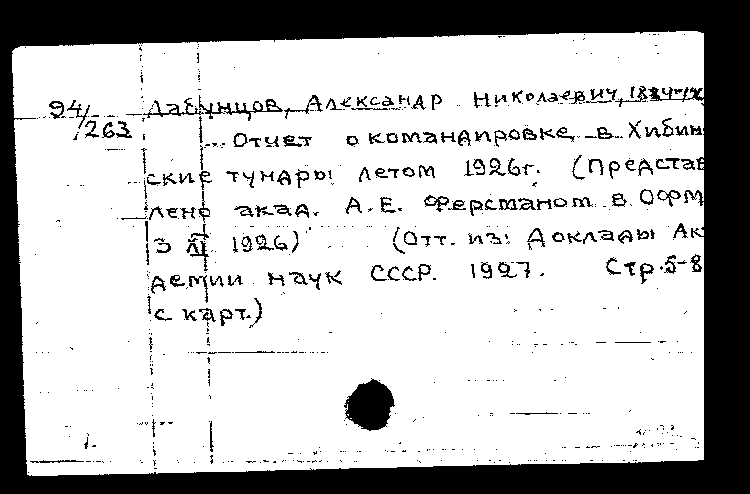 94/263 Лабунцов, Александр Николаевич, 1884-
Отчет о командировке в Хибин
ские тундры летом 1926г. (Представ
лено акад. А.Е. Ферсманом в ОФМ
3 XI 1926) (Отт. из: Доклады Ак
демии наук СССР. 1927. Стр.5-8
с карт.)
1.